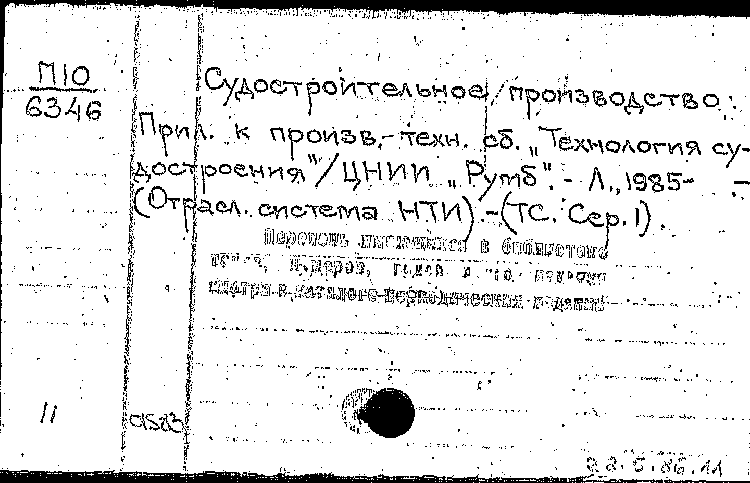 П10
6346
Судостроительное производство:
Прил. к произв.-техн. сб. „Технология су-
достроения"/ЦНИИ „Румб".- Л., 1985- -
(Отрасл. система НТИ).-(ТС. Сер. 1).
Перечень имеющихся в библиотеке
шифры в каталоге периодических изданий
11